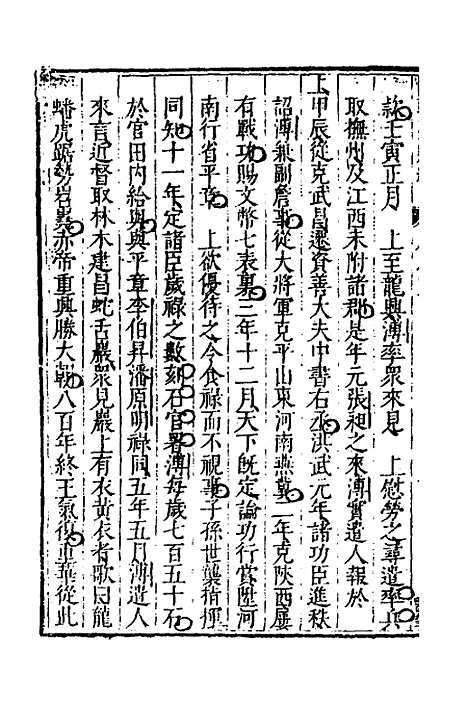 款壬寅正月　上至龍興溥率衆來見　上慰勞之尋遣率兵
取撫州及江西未附諸郡是年元張昶之來溥實遣人報於
上甲辰從克武昌遷資善大夫中書右丞洪武元年諸功臣進秩
詔溥兼副詹事從大將軍克平山東河南燕冀二年克陝西屢
有戰功賜文幣七表裏三年十二月天下旣定論功行賞陞河
南行省平章　上欲優待之令食祿而不視事子孫世襲指揮
同知十一年定諸臣歲祿之數刻石官署溥每歲七百五十石
於官田內給與與平章李伯昇潘原明祿同五年五月溥遣人
來言近督取林木建昌蛇舌巖衆見巖上有衣黃衣者歌曰龍
蟠虎踞勢岩嶤赤帝重興勝大朝八百年終王氣復重華從此